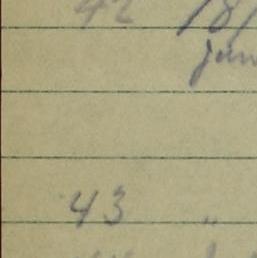 42 18/
jun
43 "